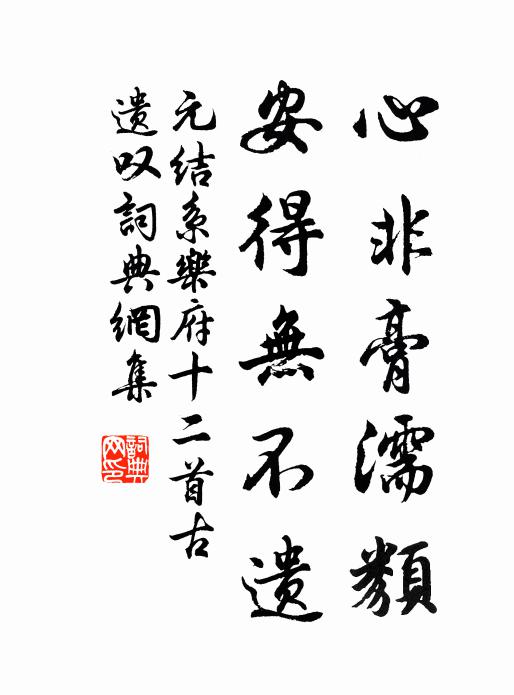 心非膏濡類
安得無不遺
元結系樂府十二首古
遺叹詞典網集
詞典网印